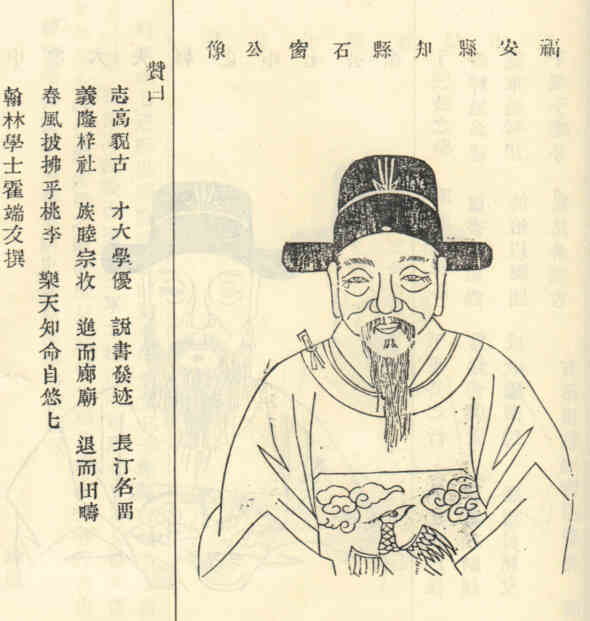 福安縣知縣石窗公像
贊曰
志高䫉古 才大學優 說書發迹 長汀名畱
義隆梓社 族睦宗收 進而廊廟 退而田疇
春風披拂乎桃李 樂天知命自悠七
翰林學士霍端友撰